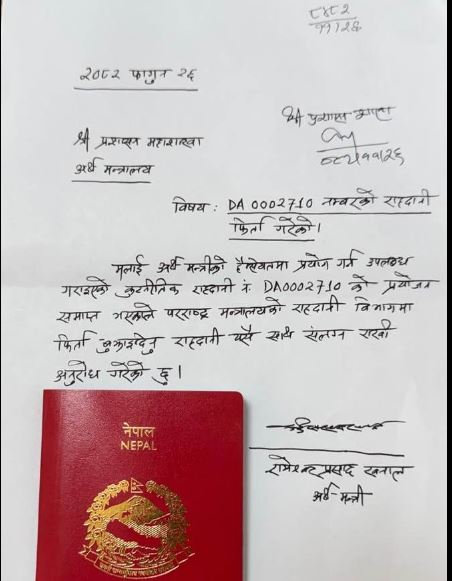 ८४८२
११।२६
२०८२ फागुन २६
श्री प्रशासन शाखा
०८२।११।२६
श्री प्रशासन महाशाखा
अर्थ मन्त्रालय
विषय : DA 0002710 नम्बरको राहदानी
फिर्ता गरेको।
मलाई अर्थ मन्त्रीको हैसियतमा प्रयोग गर्न उपलब्ध
गराइएको कुटनीतिक राहदानी नं DA0002710 को प्रयोजन
समाप्त भएकोले परराष्ट्र मन्त्रालयको राहदानी विभागमा
फिर्ता बुझाइदिनु राहदानी यसै साथ संलग्न राखी
अनुरोध गरेको छु।
रामेश्वर प्रसाद खनाल
अर्थ-मन्त्री
नेपाल
NEPAL